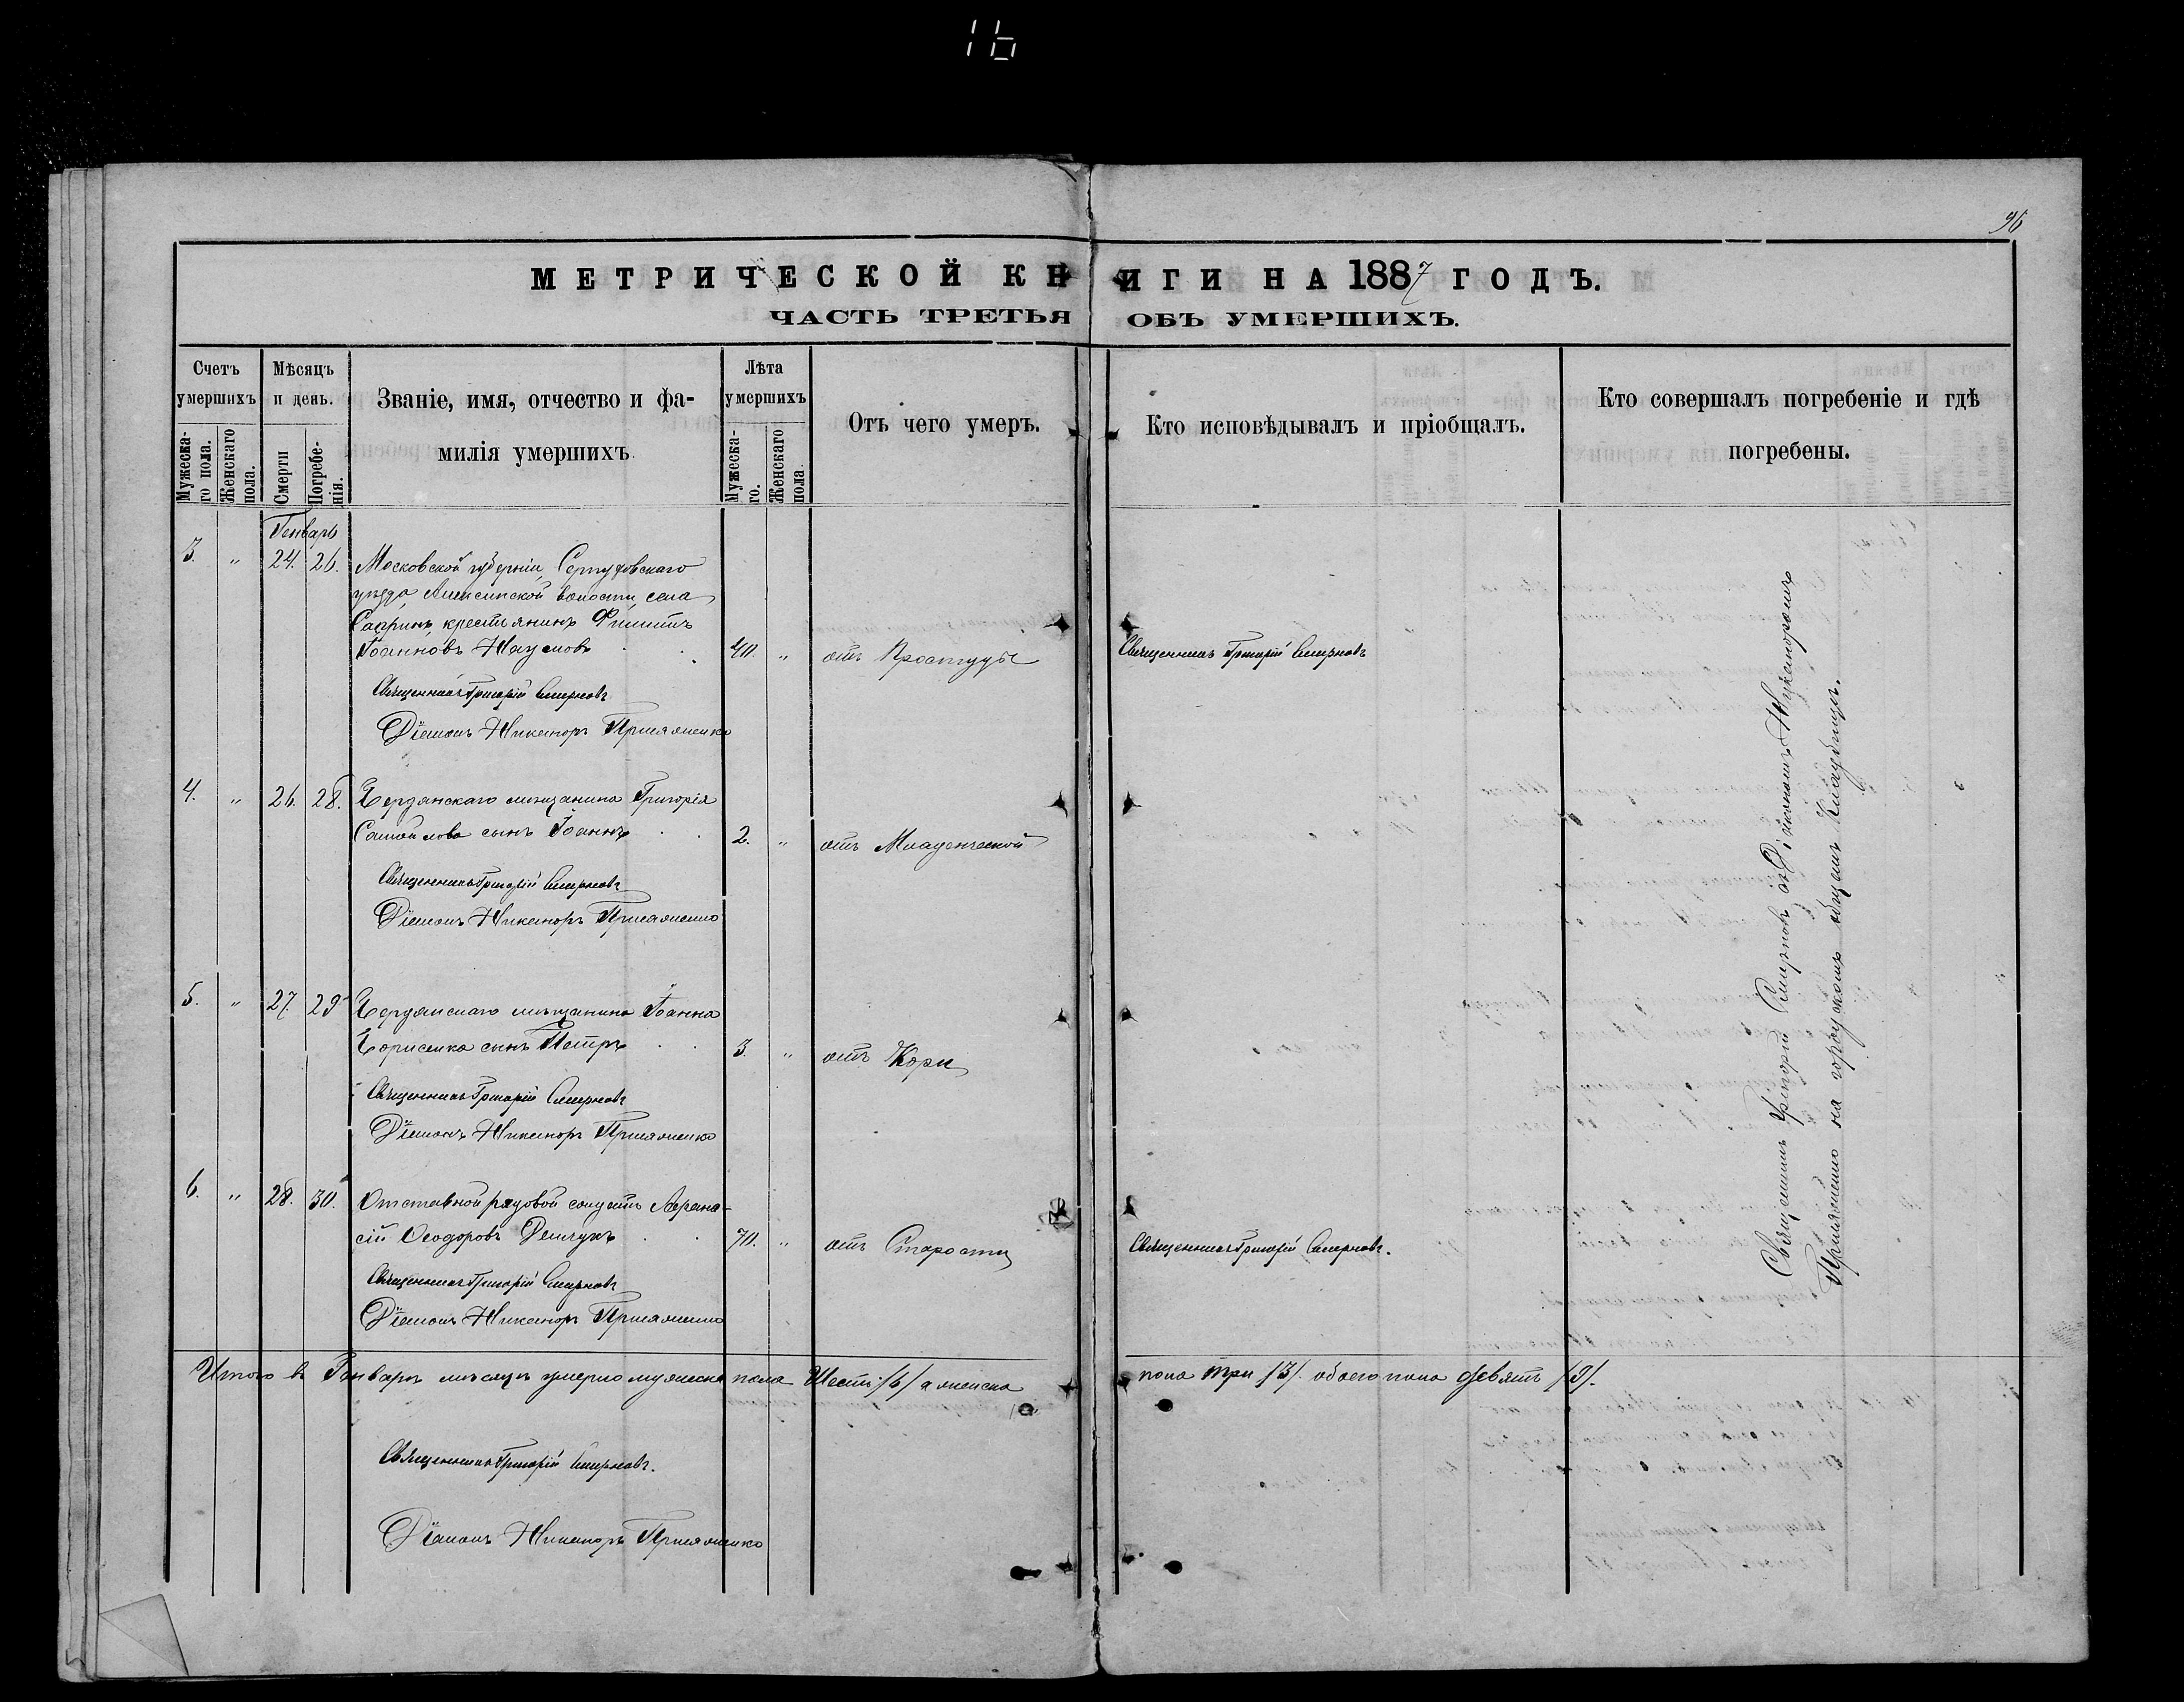 16
96
МЕТРИЧЕСКОЙ КНИГИ НА 1887 ГОДЪ.
ЧАСТЬ ТРЕТЬЯ ОБЪ УМЕРШИХЪ.
Счетъ умершихъ
Мужеска-го пола.
Женскаго пола.
Мѣсяцъ и день.
Смерти
Погребе-нія.
Званіе, имя, отчество и фа-
милія умершихъ
Лѣта умершихъ
Мужеска-го.
Женскаго пола
Отъ чего умеръ.
Кто исповѣдывалъ и пріобщалъ.
Кто совершалъ погребеніе и гдѣ
погребены.
Генварь
3. " 24. 26. Московской губерніи, Серпуховскаго
уѣзда волости, села
крестьянинъ Филиппъ
Іоанновъ Наумовъ 40. " отъ Простуды Священникъ Григорій Смирновъ
Священникъ Григорій Смирновъ
Діаконъ Никаноръ Присяженко
4. " 26. 28. Бердянскаго мѣщанина Григорія
Самойлова сынъ Іоаннъ 2. " отъ Младенческой
Священникъ Григорій Смирновъ
Діаконъ Никаноръ Присяженко
5. " 27. 29 Бердянскаго мѣщанина Іоанна
Борисенка сынъ Петръ 3. " отъ Кори
Священникъ Григорій Смирновъ
Діаконъ Никаноръ Присяженко
6. " 28. 30. Отставной рядовой солдатъ Афана-
сій Ѳеодоровъ Демчукъ 70. " отъ Старости Священникъ Григорій Смирновъ.
Священникъ Григорій Смирновъ
Діаконъ Никаноръ Присяженко
Священникъ Григорій Смирновъ съ Діакономъ Никаноромъ
Присяженко на городскомъ общемъ Кладбищѣ.
Итого въ Генварѣ мѣсяцѣ умерло мужеска пола Шесть /6/ а женска пола три /3/. обоего пола девять /9/.
Священникъ Григорій Смирновъ.
Діаконъ Никаноръ Присяженко